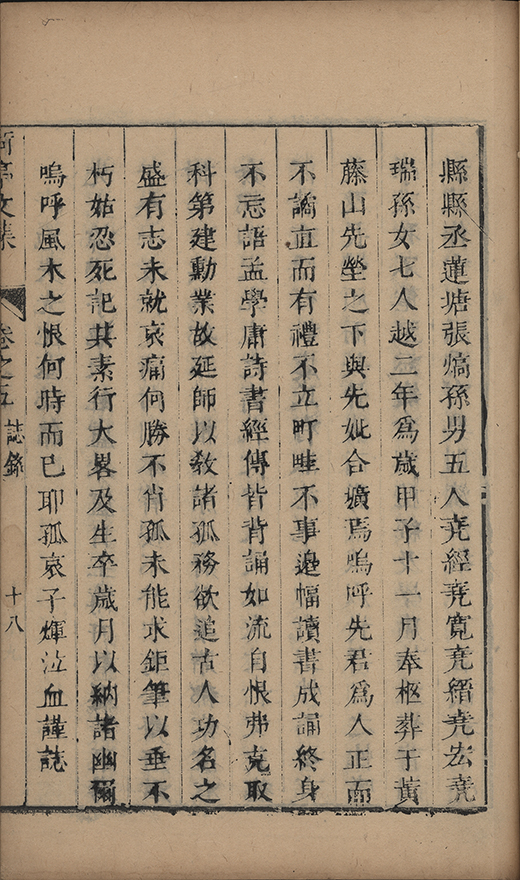 縣縣丞蓮塘張熇孫男五人尭經尭寛尭縉尭宏尭
瑞孫女七人越二年爲歳甲子十一月奉柩葬于黄
藤山先塋之下與先妣合壙焉嗚呼先君爲人正而
不譎直而有禮不立町畦不事邊幅讀書成誦終身
不忘語孟學庸詩書經傳皆背誦如流自恨弗克取
科第建勳業故延師以敎諸孤務欲追古人功名之
盛有志未就哀痛何勝不肖孤未能求鉅筆以垂不
朽姑忍死記其素行大畧及生卒歳月以納諸幽爾
嗚呼風木之恨何時而已耶孤哀子煇泣血謹誌
亭文集
卷之五
誌錄
十八